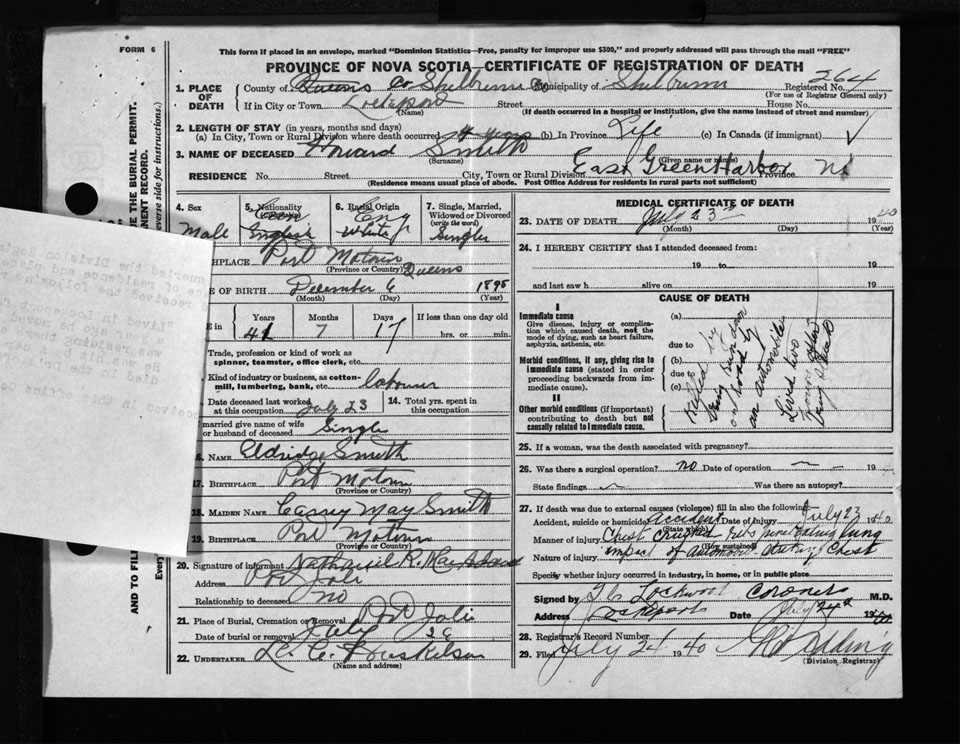 FORM 6
This form if placed in an envelope, marked "Dominion Statistics—Free, penalty for improper use $300," and properly addressed will pass through the mail "FREE"
PROVINCE OF NOVA SCOTIA—CERTIFICATE OF REGISTRATION OF DEATH
1. PLACE OF DEATH
County of Queens Co Shelburne Municipality of Shelburne Registered No. 264
(For use of Registrar General only)
If in City or Town Lockeport Street House No.
(Name) (If death occurred in a hospital or institution, give the name instead of street and number)
2. LENGTH OF STAY (in years, months and days)
(a) In City, Town or Rural Division where death occurred 14 years (b) In Province Life (c) In Canada (if immigrant)
3. NAME OF DECEASED Howard Smith
(Surname) (Given name or names)
RESIDENCE No. Street City, Town or Rural Division East Green Harbor Province NS
(Residence means usual place of abode. Post Office Address for residents in rural parts not sufficient)
4. Sex Male
5. Nationality (Citizenship) English
6. Racial Origin Eng White
7. Single, Married, Widowed or Divorced (write the word) Single
THPLACE Port Motoun Queens
(Province or Country)
E OF BIRTH December 6 1895
(Month) (Day) (Year)
E in Years Months Days If less than one day old
41 7 17 hrs. or min.
Trade, profession or kind of work as spinner, teamster, office clerk, etc.
Kind of industry or business, as cotton-mill, lumbering, bank, etc. labourer
Date deceased last worked at this occupation July 23
14. Total yrs. spent in this occupation
married give name of wife or husband of deceased Single
NAME Eldridge Smith
17. BIRTHPLACE Port Motoun
(Province or Country)
18. MAIDEN NAME Cassey May Smith
19. BIRTHPLACE Port Motoun
(Province or Country)
20. Signature of informant Nathaniel R.
Address Port Joli
Relationship to deceased no
21. Place of Burial, Cremation or Removal Port Joli
Date of burial or removal July 26
22. UNDERTAKER L. C.
(Name and address)
MEDICAL CERTIFICATE OF DEATH
23. DATE OF DEATH July 23rd 1940
(Month) (Day) (Year)
24. I HEREBY CERTIFY that I attended deceased from:
19 to 19
and last saw h alive on 19
CAUSE OF DEATH
I
Immediate cause
Give disease, injury or complication which caused death, not the mode of dying, such as heart failure, asphyxia, asthenia, etc.
(a)
due to
Morbid conditions, if any, giving rise to immediate cause (stated in order proceeding backwards from immediate cause).
(b)
due to
(c)
II
Other morbid conditions (if important) contributing to death but not causally related to immediate cause.
Killed by
being run down
on road by
an automobile
Lived two
hours after
being struck
25. If a woman, was the death associated with pregnancy?
26. Was there a surgical operation? no Date of operation 19
State findings Was there an autopsy?
27. If death was due to external causes (violence) fill in also the following:
Accident, suicide or homicide accident Date of injury July 23 1940
(State which)
Manner of injury Chest crushed ribs penetrating lung
(How sustained)
Nature of injury impact of automobile striking chest
Specify whether injury occurred in industry, in home, or in public place
Signed by Lockwood Coroner M.D.
Address Lockeport Date July 24th 1940
28. Registrar's Record Number
29. Filed July 24 1940
(Division Registrar)
THE BURIAL PERMIT.
ANENT RECORD.
everse side for instructions.)
AND TO FILE
Every